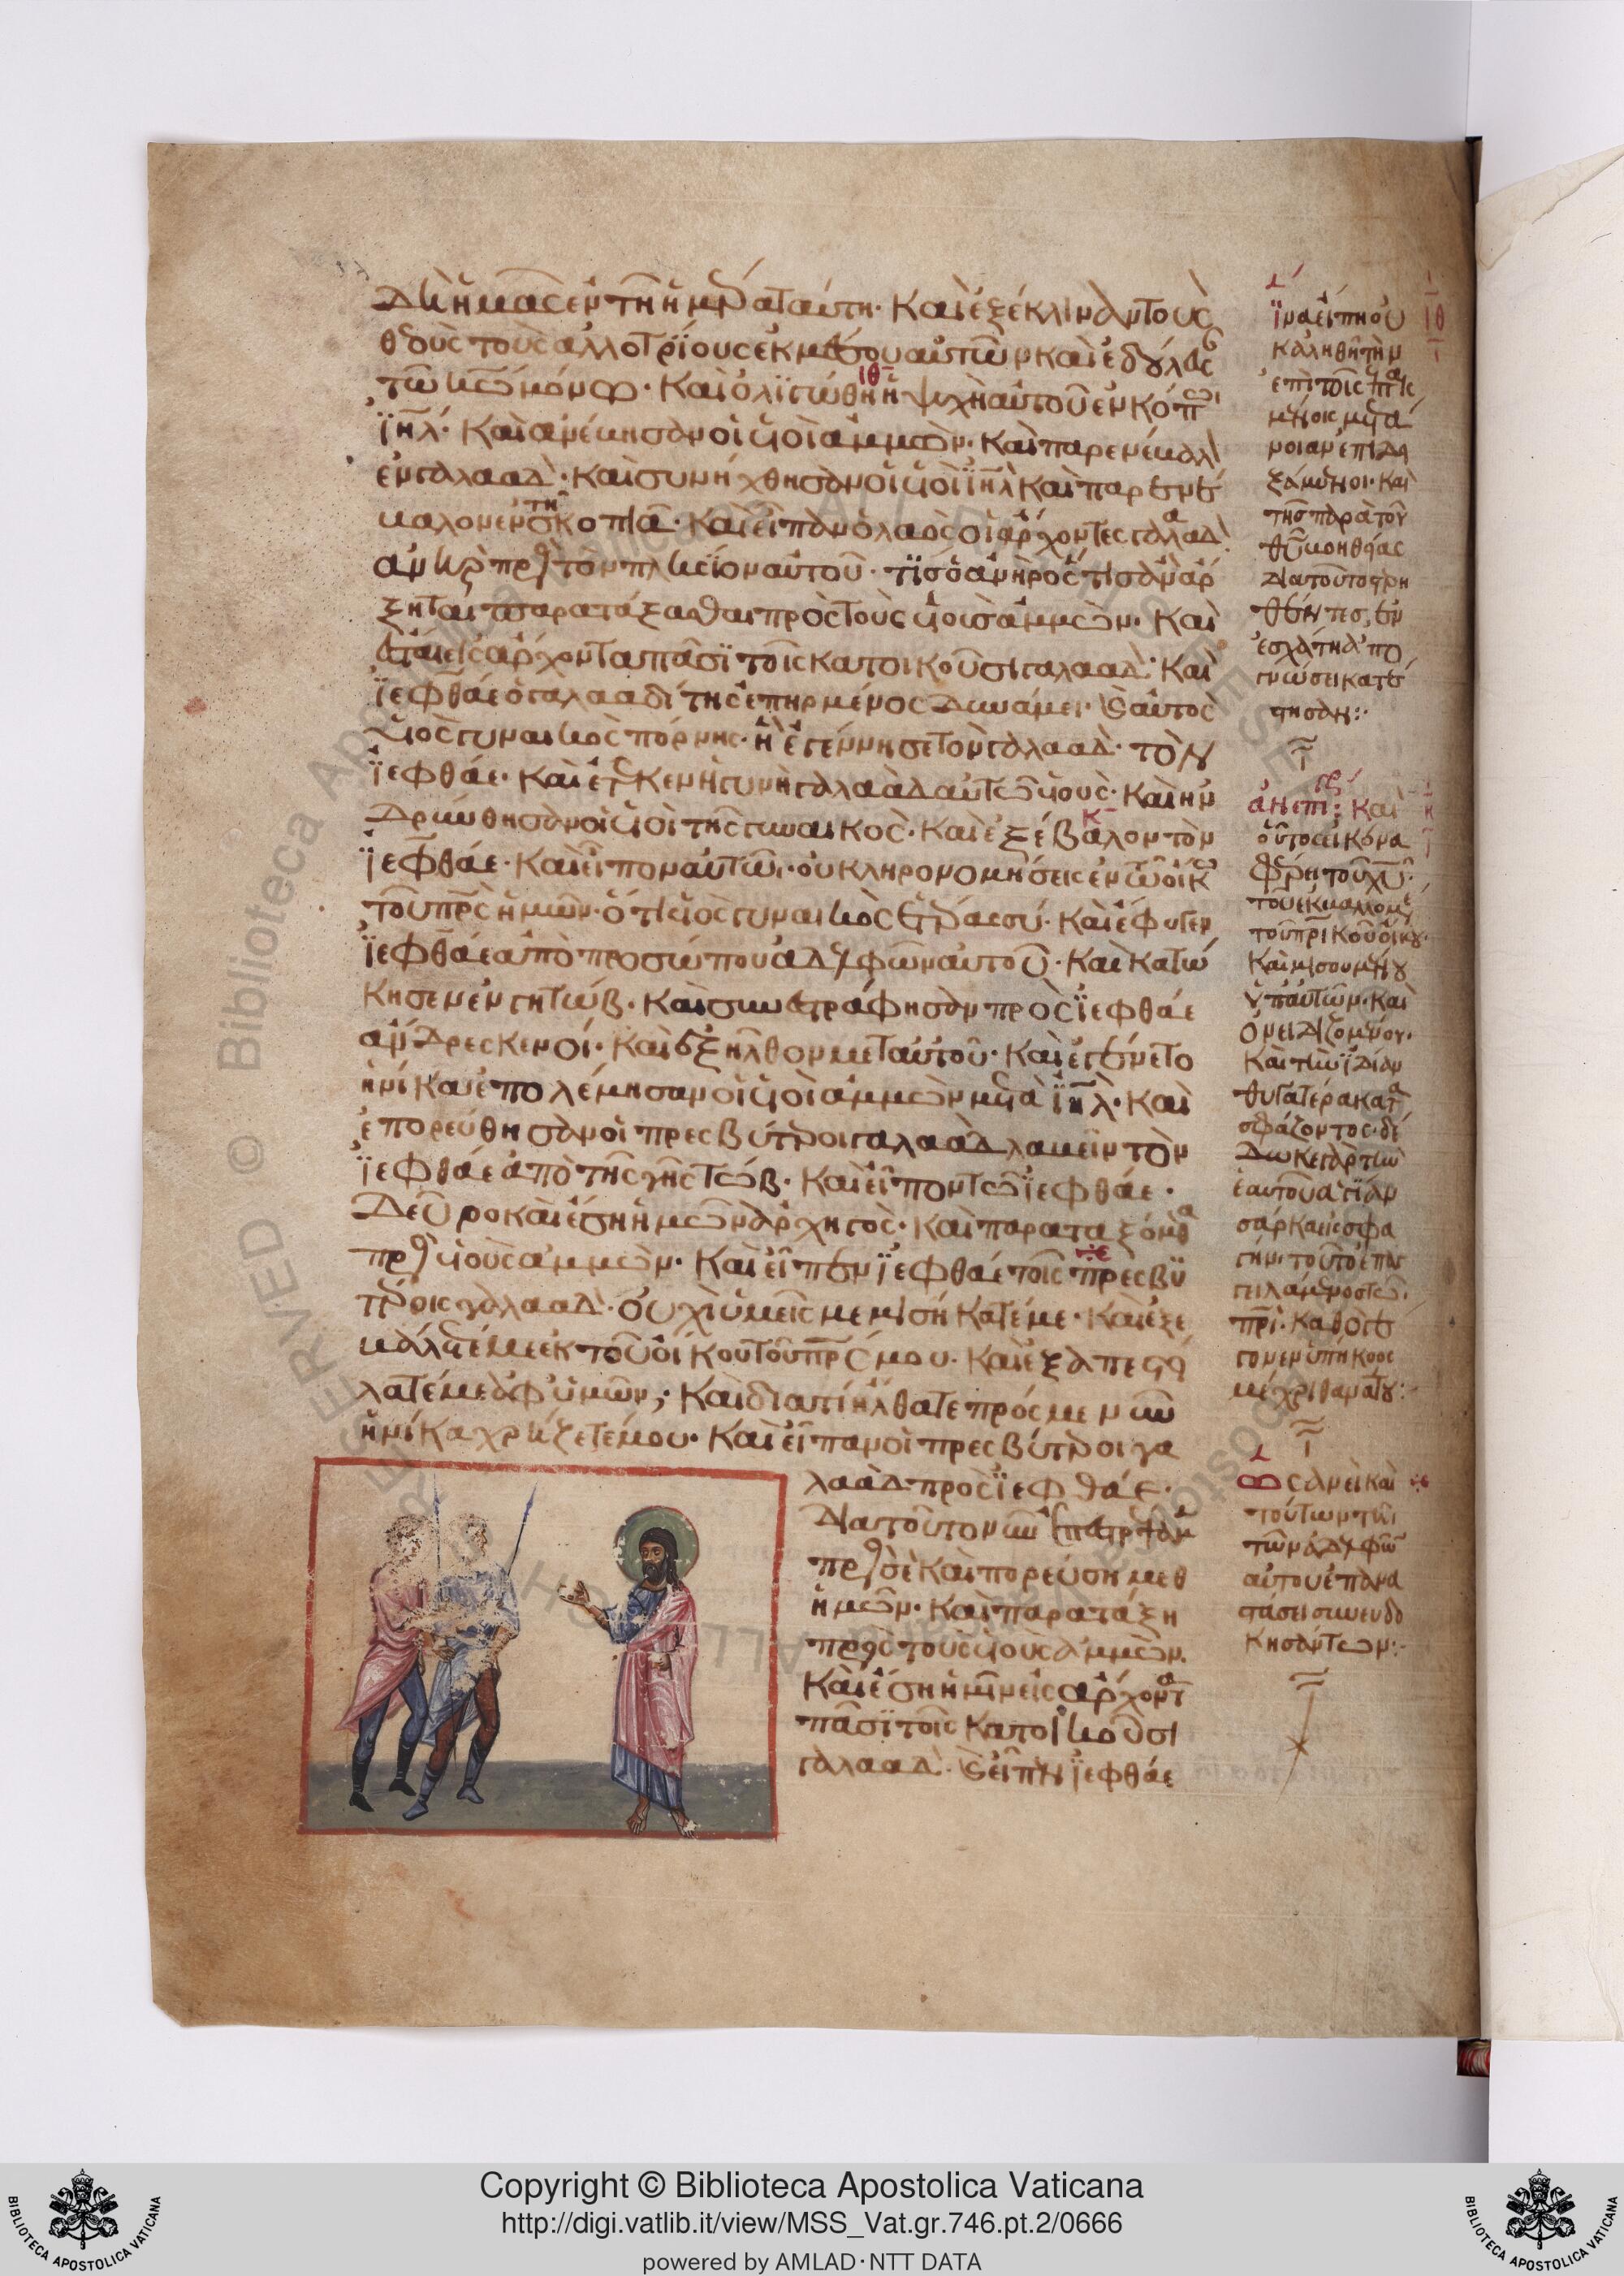 ἡμᾶς ἐν τῆ ἡμέρα ταύτη· καὶ ἐξέκλιναν τοὺς
θεοὺς τοὺς ἀλλοτρίους ἐκ μέσου αὐτῶν καὶ ἐδούλευσ
τῶ κω μόνω· καὶ ὀλιγώθη ἡ ψυχὴ αὐτοῦ ἐν κόπω
ϊηλ· καὶ ἀνέβησαν οἱ υἱοὶ ἀμμών· καὶ παρενέβαλ
ἐν γαλαάδ· καὶ συνήχθησαν οἱ υἱοὶ ϊηλ καὶ παρενέ
βαλον ἐν τῆ σκοπιᾶ· καὶ εἶπαν ὁ λαὸς οἱ ἄρχοντες γαλαάδ·
ἀνὴρ πρὸς τὸν πλησίον αὐτοῦ· τίς ὁ ἀνὴρ ὅστις ἂν ἄρ
ξηται παρατάξασθαι πρὸς τοὺς υἱοὺς ἀμμών· καὶ
ἔσται εἰς ἄρχοντα πᾶσι τοῖς κατοικοῦσι γαλαάδ· καὶ
ϊεφθάε ὁ γαλααδίτης ἐπηρμένος δυνάμει· καὶ αὐτὸς
υἱὸς γυναικὸς πόρνης· ἢ ἐγέννησε τὸν γαλαάδ· τὸν
ϊεφθάε· καὶ ἔτεκεν ἡ γυνὴ γαλαὰδ αὐτῶ υἱούς· καὶ ἠν
δρώθησαν οἱ υἱοὶ τῆς γυναικός· καὶ ἐξέβαλον τὸν
ϊεφθάε· καὶ εἶπον αὐτῶ· οὐ κληρονομήσεις ἐν τῶ οἴκω
τοῦ πρς ἡμῶν· ὅτι υἱὸς γυναικὸς ἑταίρας εἶ σύ· καὶ ἔφυγεν
ϊεφθάε ἀπὸ προσώπου ἀδελφῶν αὐτοῦ· καὶ κατώ
κησεν ἐν γῆ τώβ· καὶ συνεστράφησαν πρὸς ϊεφθάε
ἄνδρες κενοί· καὶ ἐξῆλθον μετ' αὐτοῦ· καὶ ἐγένετο
ἡνίκα ἐπολέμησαν οἱ υἱοὶ ἀμμὼν μετὰ ϊηλ· καὶ
ἐπορεύθησαν οἱ πρεσβύτεροι γαλαὰδ λαβεῖν τὸν
ϊεφθάε ἀπὸ τῆς γῆς τώβ· καὶ εἶπον τῶ ϊεφθάε·
δεῦρο καὶ ἔση ἡμῶν ἀρχηγός· καὶ παραταξόμεθα
πρὸς υἱοὺς ἀμμών· καὶ εἶπεν ϊεφθάε τοῖς πρεσβυ
τέροις γαλαάδ· οὐχὶ ὑμεῖς μεμισήκατέ με· καὶ ἐξε
βάλετέ με ἐκ τοῦ οἴκου τοῦ πρς μου· καὶ ἐξαπεστεί
λατέ με ἀφ' ὑμῶν; καὶ διατί ἤλθατε πρός με νῦν
ἡνίκα χρήζετέ μου· καὶ εἶπαν οἱ πρεσβύτεροι γα
λαὰδ πρὸς ϊεφθάε·
διατοῦτο νῦν
πρὸς σὲ καὶ πορεύση μεθ
ἡμῶν· καὶ παρατάξη
πρὸς τοὺς υἱοὺς ἀμμών·
καὶ ἔση ἡμῖν εἰς ἄρχοντα
πᾶσι τοῖς κατοικοῦσι
γαλαάδ· καὶ εἶπεν ϊεφθάε
ϊνα εἴπη οὐ
ἐπὶ τοῖς
μετά
νοιαν
ξάμενοι· καὶ
τῆς παρὰ τοῦ
θυ βοηθείας
διατοῦτο
γνώσει κατέ
στησαν:·
ἀνεπι: καὶ
οὗτος εἰκόνα
φέρει τοῦ χυ·
τοῦ ἐκβαλλομέ
τοῦ πρικοῦ οἴκου·
καὶ μισουμένου
ὑπ' αὐτῶν· καὶ
ὀνειδιζομένου·
καὶ τὴν ϊδίαν
θυγατέρα κατα
σφάζοντος· δέ
δωκε γὰρ τὴν
ἑαυτοῦ ἁγίαν
σάρκα εἰς σφα
γήν· τοῦτο ἐπαγ
γειλάμενος τῶ
πρι· καθὸ γέ
γονεν ὑπήκοος
μέχρι θανάτου:·
ὡσανεὶ καὶ
τούτων τῶν
τῶν ἀδελφῶν
αὐτοῦ ἐπανα
στάσει συνευδο
κησάντων:·
Copyright © Biblioteca Apostolica Vaticana
http://digi.vatlib.it/view/MSS_Vat.gr.746.pt.2/0666
powered by AMLAD·NTT DATA
BIBLIOTECA APOSTOLICA VATICANA
BIBLIOTECA APOSTOLICA VATICANA